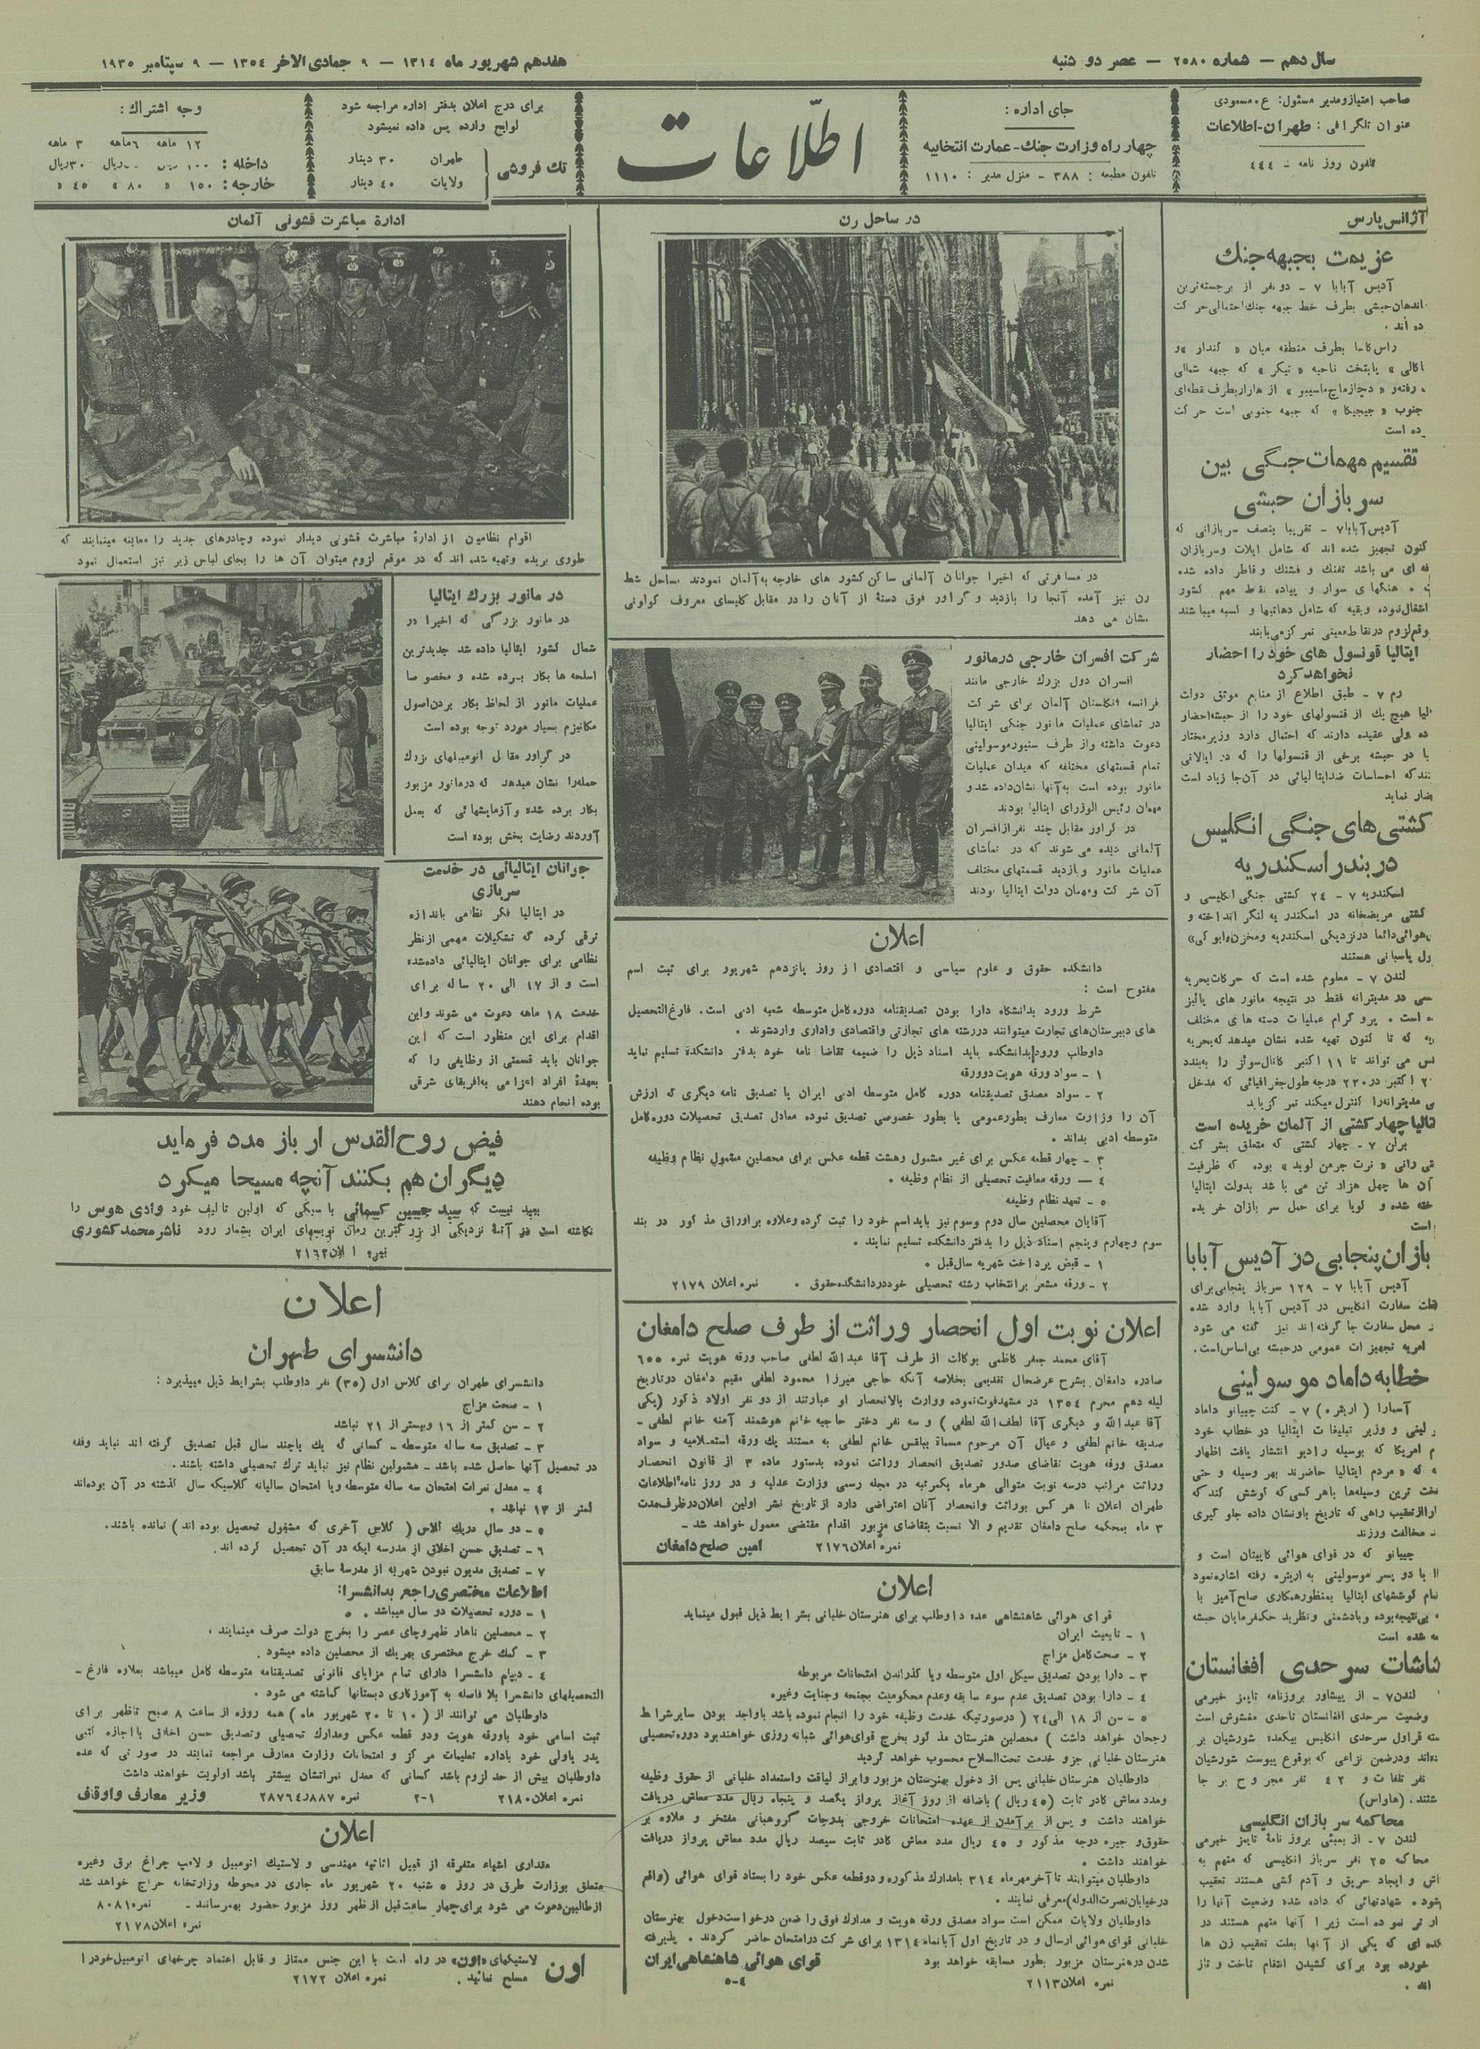 سال دهم — شماره ۲۵۸۰ — عصر دو شنبه
هفدهم شهریور ماه ۱۳۱۴ — ۹ جمادی الاخر ۱۳۵۴ — ۹ سپتامبر ۱۹۳۵
صاحب امتیاز و مدیر مسئول: ع. مسعودی
عنوان تلگرافی: طهران-اطلاعات
تلفون روز نامه : ۴۴۴
جای اداره:
چهار راه وزارت جنك-عمارت انتخابیه
تلفون مطبعه : ۳۸۸ - منزل مدیر : ۱۱۱۰
اطلاعات
برای درج اعلان بدفتر اداره مراجعه شود
لوایح وارده پس داده نمیشود
تك فروشی
طهران ۳۰ دینار
ولایات ۴۰ دینار
وجه اشتراك:
۱۲ ماهه ۶ماهه ۳ ماهه
داخله: ۱۰۰ ریال ریال ۳۰ریال
خارجه: ۱۵۰ « ۸۰ « ۴۵ «
آژانس پارس
عزیمت بجبهه جنك
آدیس آبابا ۷ - دو نفر از برجسته‌ترین
حبشی بطرف خط جبهه جنك احتمالی حر كت
ده اند .
بطرف منطقه میان « گندار » و
پایتخت ناحیه « تیگر » که جبهه شمالی
از هارار بطرف نقطه‌ای
جنوب « جیجیكا » که جبهه جنوبی است حر كت
ده است
تقسیم مهمات جنگی بین
سربازان حبشی
آدیس آبابا ۷ - تقریبا بنصف سربازانی که
كنون تجهیز شده اند که شامل ایلات و سربازان
فه ای می باشد تفنگ و فشنگ و قاطر داده شده
هنگهای سوار و پیاده نقاط مهم كشور
اشغال نموده و بقیه که شامل دهاتیها و كسبه میباشند
لزوم در نقاط معینی تمر كز می‌یابند
ایتالیا قونسول های خود را احضار
نخواهد كرد
رم ۷ - طبق اطلاع از منابع موثق دولت
هیچ یك از قنسولهای خود را از حبشه احضار
ده ولی عقیده دارند که احتمال دارد وزیر مختار
با در حبشه برخی از قنسولها را که در ایالاتی
که احساسات ضد ایتالیائی در آن‌جا زیاد است
ضار نماید
كشتی‌های جنگی انگلیس
در بندر اسكندریه
اسكندریه ۷ - ۲۴ كشتی جنگی انگلیسی و
كشتی مریضخانه در اسكندر یه لنگر انداخته و
هوائی دائما در نزدیكی اسكندریه
پاسبانی هستند
لندن ۷ - معلوم شده است که حركات بحریه
در مدیترانه فقط در نتیجه مانور های پائیز
است . پرو گرام عملیات دسته های مختلف
که تا كنون تهیه شده نشان میدهد که بحریه
می تواند تا ۱۱ اكتبر كانال سوئز را
اكتبر درجه طول جغرافیائی که مدخل
مدیترانه را كنترل میكند تمر كز یابد
چهار كشتی از آلمان خریده است
برلن ۷ - چهار كشتی که متعلق بشر كت
رانی « نرت جرمن لوید » بوده که ظرفیت
آن ها چهل هزار تن می با شد بدولت ایتالیا
شده و گویا برای حمل سر بازان خر یده
است
بازان پنجابی در آدیس آبابا
آدیس آبابا ۷ - ۱۲۹ سرباز پنجابی برای
سفارت انگلیس در آدیس آبابا وارد شده
محل سفارت جا گرفته اند نیز گفته می شود
امریه تجهیز ات عمومی در حبشه بی اساس است.
خطابه داماد موسولینی
آسمارا ( اریتره ) ۷ - كنت چیانو داماد
لینی و وزیر تبلیغات ایتالیا در خطاب خود
امریكا که بوسیله رادیو انتشار یافت اظهار
که « مردم ایتالیا حاضرند بهر وسیله و حتی
ترین وسیله‌ها باهر كسی که كوشش كند که
راهی که تاریخ باونشان داده جلو گیری
مخالفت ورزند
چیانو که در قوای هوائی كاپیتان است و
با دو پسر موسولینی به اریتره رفته اشاره نمود
كوششهای ایتالیا بمنظور همكاری صلح آمیز با
بی‌نتیجه بوده و با دشمنی و نظر بد حكمفرمایان حبشه
شده است
شاشات سرحدی افغانستان
لندن ۷ - از پیشاور بروزنامه تایمز خبر می
وضعیت سرحدی افغانستان تا حدی مغشوش است
قراول سرحدی انگلیس شورشیان بر
و در ضمن نزاعی که بوقوع پیوست شورشیان
نفر تلفات و ۴۲ نفر مجر و ح بر جا
شتند. (هاواس)
محاكمه سر بازان انگلیسی
لندن ۷ - از بمبئی بروز نامهٔ تایمز خبر می
محاكمه ۲۵ نفر سرباز انگلیسی که متهم به
و ایجاد حریق و آدم كشی هستند تعقیب
شود . شهادتهائی که داده شده وضعیت آنها را
تر نمو ده است زیرا آنها متهم هستند در
ای که یكی از آنها بعلت تعقیب زن ها
خورده بود برای كشیدن انتقام تاخت و تاز
اند .
در ساحل رن
در مسافرتی که اخیرا جوانان آلمانی ساكن كشور های خارجه به آلمان نمودند بساحل شط
رن نیز آمده آنجا را بازدید و گراور فوق دستهٔ از آنان را در مقابل كلیسای معروف كولونی
نشان می دهد
شركت افسران خارجی در مانور
افسران دول بزرك خارجی مانند
فرانسه انگلستان آلمان برای شر كت
در تماشای عملیات مانور جنگی ایتالیا
دعوت داشته و از طرف سنیور موسولینی
تمام قسمتهای مختلفه که میدان عملیات
مانور بوده است به آنها نشان داده شد و
مهمان رئیس الوزرای ایتالیا بودند
در گراور مقابل چند نفر از افسران
آلمانی دیده می شوند که در تماشای
عملیات مانور و بازدید قسمتهای مختلف
آن شر كت و مهمان دولت ایتالیا بودند
اعلان
دانشكده حقوق و علوم سیاسی و اقتصادی از روز پانزدهم شهریور برای ثبت اسم
مفتوح است :
شرط ورود بدانشكاه دارا بودن تصدیقنامه دوره كامل متوسطه شعبه ادبی است. فارغ التحصیل
های دبیرستان‌های تجارت میتوانند در رشته های تجارتی و اقتصادی و اداری وارد شوند .
داوطلب ورود بدانشكده باید اسناد ذیل را ضمیمه تقاضا نامه خود بدفتر دانشكدهٔ تسلیم نماید
۱ - سواد ورقه هویت دو ورقه
۲ - سواد مصدق تصدیقنامه دوره كامل متوسطه ادبی ایران یا تصدیق نامه دیگری که ارزش
آن را وزارت معارف بطور عمومی یا بطور خصوصی تصدیق نموده معادل تصدیق تحصیلات دوره كامل
متوسطه ادبی بداند .
۳ - چهار قطعه عكس برای غیر مشمول و هشت قطعه عكس برای محصلین مشمول نظام وظیفه
۴ — ورقه معافیت تحصیلی از نظام وظیفه .
۵ - تعهد نظام وظیفه
آقایان محصلین سال دوم و سوم نیز باید اسم خود را ثبت كرده و علاوه بر اوراق مذ كور در بند
سوم و چهارم و پنجم اسناد ذیل را بدفتر دانشكده تسلیم نمایند .
۱ - قبض پرداخت شهریه سال قبل .
۲ - ورقه مشعر بر انتخاب رشته تحصیلی خود در دانشكده حقوق . نمره اعلان ۲۱۷۹
اعلان نوبت اول انحصار وراثت از طرف صلح دامغان
آقای محمد جعفر كاظمی بوكالت از طرف آقا عبدالله لطفی صاحب ورقه هویت نمره ۶۰۰
صادره دامغان بشرح عرضحال تقدیمی بخلاصه آنكه حاجی میرزا محمود لطفی مقیم دامغان در تاریخ
لیله دهم محرم ۱۳۵۴ در مشهد فوت نموده و وراث بالانحصار او عبارتند از دو نفر اولاد ذكور (یكی
آقا عبدالله و دیگری آقا لطف الله لطفی ) و سه نفر دختر حاجیه خانم هوشمند آمنه خانم لطفی -
صدیقه خانم لطفی و عیال آن مرحوم مسماة بیلقس خانم لطفی به مستند یك ورقه استعلامیه و سواد
مصدق ورقه هویت تقاضای صدور تصدیق انحصار وراثت نموده بدستور ماده ۳ از قانون انحصار
وراثت مراتب در سه نوبت متوالی هر ماه یكمرتبه در مجله رسمی وزارت عدلیه و در روز نامه اطلاعات
طهران اعلان تا هر كس بوراثت و انحصار آنان اعتراضی دارد از تاریخ نشر اولین اعلان در ظرف مدت
۳ ماه بمحكمه صلح دامغان تقدیم و الا نسبت بتقاضای مزبور اقدام مقتضی معمول خواهد شد -
نمره اعلان ۲۱۷۶ امین صلح دامغان
اعلان
قوای هوائی شاهنشاهی عده داوطلب برای هنرستان خلبانی بشر ایط ذیل قبول مینماید
۱ - تابعیت ایران
۲ - صحت كامل مزاج
۳ - دارا بودن تصدیق سیكل اول متوسطه و یا گذراندن امتحانات مربوطه
۴ - دارا بودن تصدیق عدم سوء سابقه و عدم محكومیت بجنحه و جنایت و غیره
۵ - سن از ۱۸ الی ۲۴ ( در صورتیكه خدمت وظیفه خود را انجام نموده باشد باواجد بودن سایر شرایط
رجحان خواهد داشت ) محصلین هنرستان مذ كور بخرج قوای هوائی شبانه روزی خواهند بود دوره تحصیلی
هنرستان خلبانی جزو خدمت تحت السلاح محسوب خواهد گردید
داوطلبان هنرستان خلبانی پس از دخول بهنرستان مزبور و ابراز لیاقت و استعداد خلبانی از حقوق وظیفه
و مدد معاش كادر ثابت (۴۵ ریال) باضافه از روز آغاز پرواز یكصد و پنجاه ریال مدد معاش دریافت
خواهند داشت و پس از بر آمدن از عهده امتحانات خروجی بدرجات گروهبانی مفتخر و علاوه بر
حقوق و جیره درجه مذ كور و ۴۵ ریال مدد معاش كادر ثابت سیصد ریال مدد معاش پرواز دریافت
خواهند داشت .
داوطلبان میتوانند تا آخر مهر ماه ۳۱۴ بامدارك مذكوره و دو قطعه عكس خود را بستاد قوای هوائی (واقع
در خیابان نصرت الدوله) معرفی نمایند .
داوطلبان ولایات ممكن است سواد مصدق ورقه هویت و مدارك فوق را ضمن درخواست دخول بهنرستان
خلبانی قوای هوائی ارسال و در تاریخ اول آبانماه ۱۳۱۴ برای شر كت در امتحان حاضر گردند . پذیرفته
شدن در هنرستان مزبور بطور مسابقه خواهد بود قوای هوائی شاهنشاهی ایران
نمره اعلان ۲۱۱۳ ۴-۵
ادارهٔ مباشرت قشونی آلمان
اقوام نظامیین از ادارهٔ مباشرت قشونی دیدار نموده و چادرهای جدید را معاینه مینمایند که
طوری بریده و تهیه شده اند که در موقع لزوم میتوان آن ها را بجای لباس زیر نیز استعمال نمود
در مانور بزرك ایتالیا
در مانور بزرگی که اخیرا در
شمال كشور ایتالیا داده شد جدیدترین
اسلحه ها بكار برده شده و مخصوصا
عملیات مانور از لحاظ بكار بردن اصول
مكانیزم بسیار مورد توجه بوده است
در گراور مقابل اتومبیلهای بزرك
حمله را نشان میدهد که در مانور مزبور
بكار برده شده و آزمایشهائی که بعمل
آوردند رضایت بخش بوده است
جوانان ایتالیائی در خدمت
سربازی
در ایتالیا فكر نظامی باندازه
ترقی كرده که تشكیلات مهمی از نظر
نظامی برای جوانان ایتالیائی داده شده
است و از ۱۷ الی ۲۰ ساله برای
خدمت ۱۸ ماهه دعوت می شوند و این
اقدام برای این منظور است که این
جوانان باید قسمتی از وظایفی را که
بعهدهٔ افراد اعزامی به افریقای شرقی
بوده انجام دهند
فیض روح القدس ار باز مدد فرماید
دیگران هم بكنند آنچه مسیحا میكرد
بعید نیست که سید حسین كسمائی با سبكی که اولین تالیف خود وادی هوس را
نگاشته است در آتیهٔ نزدیكی از بزر گترین رمان نویسهای ایران بشمار رود ناشر محمد كشوری
نمره اعلان ۲۱۶۲
اعلان
دانشسرای طهران
دانشسرای طهران برای كلاس اول (۳۵) نفر داوطلب بشرایط ذیل میپذیرد :
۱ - صحت مزاج
۲ - سن كمتر از ۱۶ و بیشتر از ۲۱ نباشد
۳ - تصدیق سه ساله متوسطه - كسانی که یك یا چند سال قبل تصدیق گرفته اند نباید وقفه
در تحصیل آنها حاصل شده باشد - مشمولین نظام نیز نباید ترك تحصیلی داشته باشند.
۴ - معدل نمرات امتحان سه ساله متوسطه و یا امتحان سالیانه كلاسیكه سال گذشته در آن بوده‌اند
كمتر از ۱۳ نباشد .
۵ - دو سال در یك كلاس ( كلاس آخری که مشغول تحصیل بوده اند ) نمانده باشند.
۶ - تصدیق حسن اخلاق از مدرسه ایكه در آن تحصیل كرده اند.
۷ - تصدیق مدیون نبودن شهریه از مدرسهٔ سابق
اطلاعات مختصری راجع بدانشسرا:
۱ - دوره تحصیلات دو سال میباشد .
۲ - محصلین ناهار ظهر و چای عصر را بخرج دولت صرف مینمایند .
۳ - كمك خرج مختصری بهر یك از محصلین داده میشود .
۴ - دیپلم دانشسرا دارای تمام مزایای قانونی تصدیقنامه متوسطه كامل میباشد بعلاوه فارغ -
التحصیلهای دانشسرا بلا فاصله به آموزگاری دبستانها گماشته می شود .
داوطلبان می توانند از ( ۱۰ تا ۲۰ شهریور ماه ) همه روزه از ساعت ۸ صبح تا ظهر برای
ثبت اسامی خود باورقه هویت و دو قطعه عكس و مدارك تحصیلی و تصدیق حسن اخلاق با اجازه كتبی
پدر یا ولی خود باداره تعلیمات مر كز و امتحانات وزارت معارف مراجعه نمایند در صورتی که عده
داوطلبان بیش از حد لزوم باشد كسانی که معدل نمراتشان بیشتر باشد اولویت خواهند داشت
نمره اعلان ۲۱۸۰ ۱-۲ نمره ۲۸۷۶۴٫۸۸۷ وزیر معارف و اوقاف
اعلان
مقداری اشیاء متفرقه از قبیل اثاثیه مهندسی و لاستیك اتومبیل و لامپ چراغ برق و غیره
متعلق بوزارت طرق در روز ۵ شنبه ۲۰ شهریور ماه جاری در محوطه وزارتخانه حراج خواهد شد
از طالبین دعوت می شود برای چهار ساعت قبل از ظهر روز مزبور حضور بهمرسانند - نمره ۸۰۸۱۰
نمره اعلان ۲۱۷۸
اون
لاستیكهای «اون» در راه است با این جنس ممتاز و قابل اعتماد چرخهای اتومبیل خود را
مسلح نمائید . نمره اعلان ۲۱۷۲